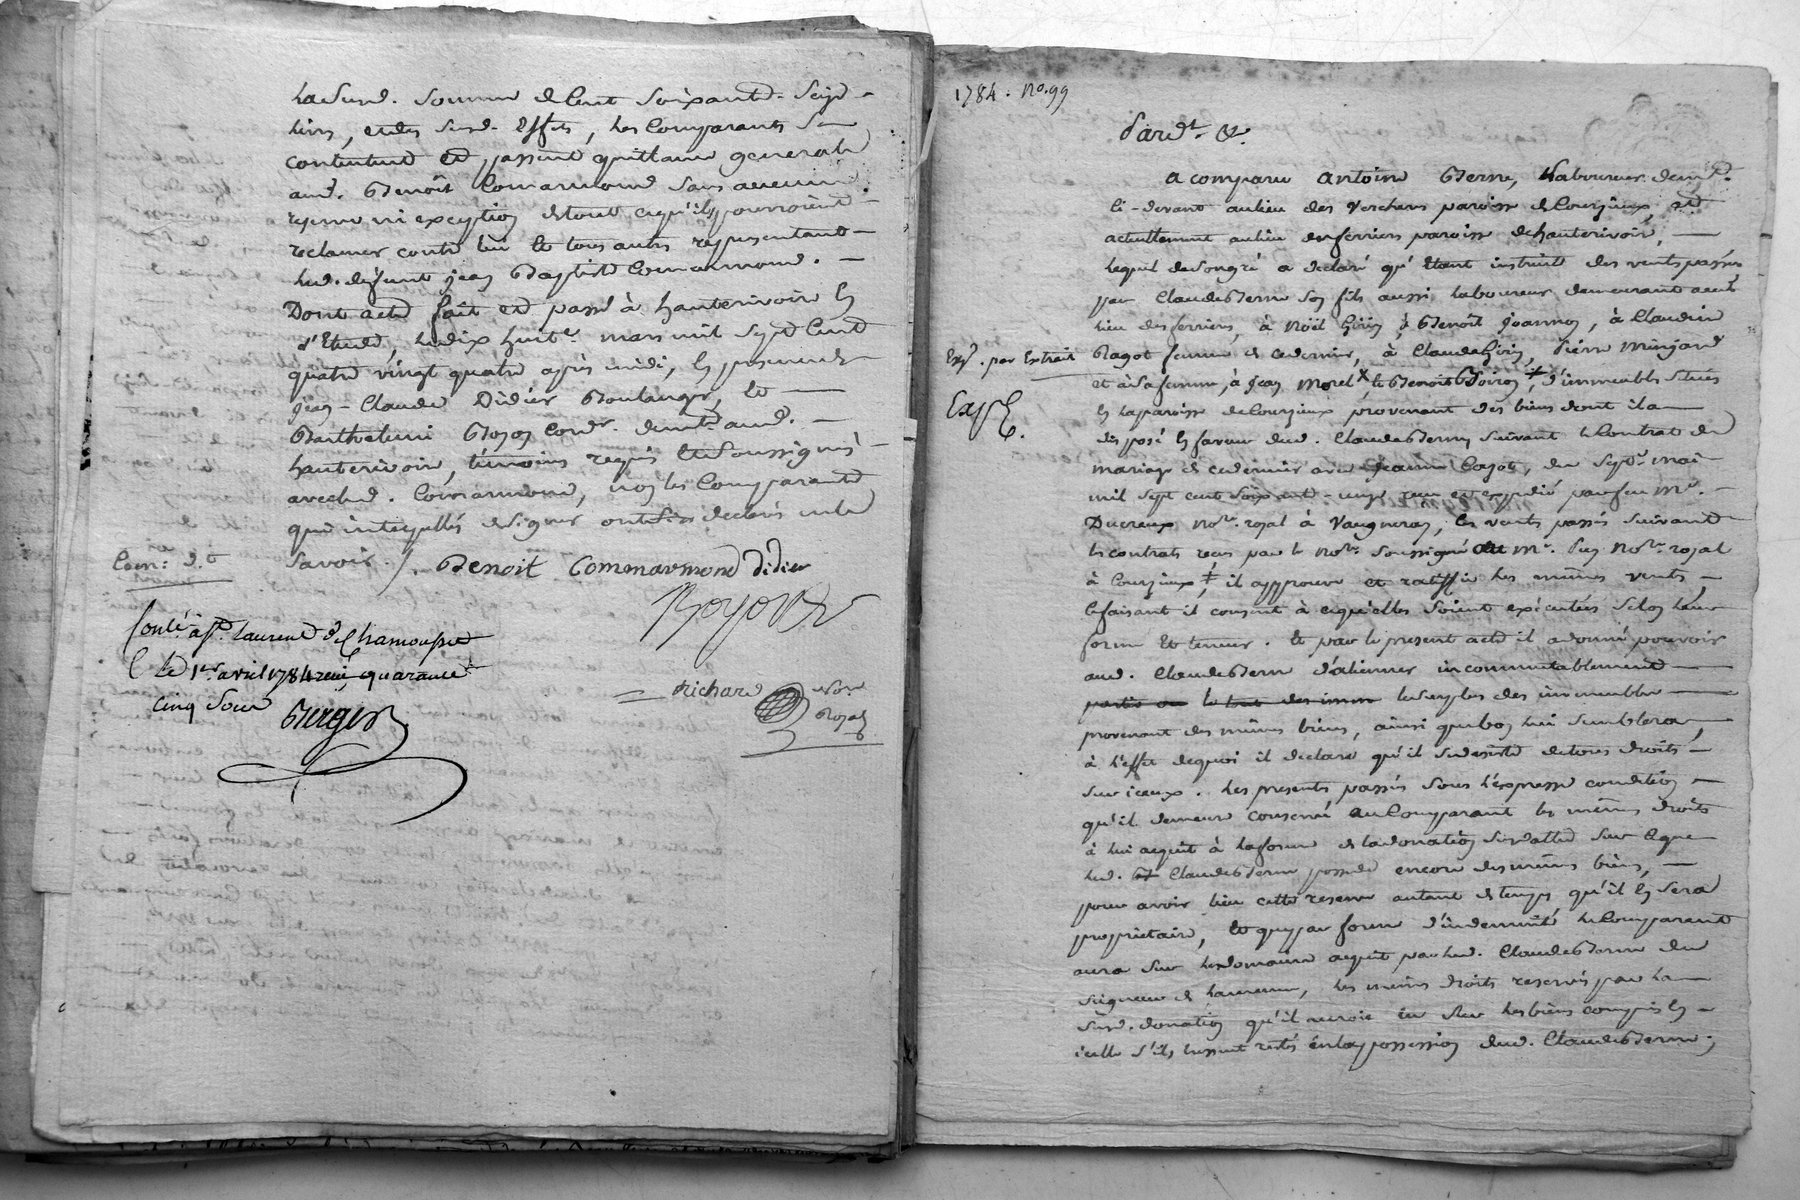 lasusd. somme de Cent soixante-sept
livres, et des susd. Effets, les Comparants se
contentent et passent quittance generale
aud. Benoît Comarmond sans aucune
reserve ni exception de tout ce qu'ils pourroient
reclamer contre lui et tous autres representants
led. defunt jean Baptiste Comarmond. —
Dont acte fait et passé à hauterivoire En
l'Etude, le dix huit.e mars mil sept Cent
quatre vingt quatre après midi, En presence de
jean-Claude Didier Boulanger, et —
Barthelemi Boyon Cord.r demt. aud. —
hauterivoire, témoins requis et soussignés
avec led. Comarmond, non les Comparants
qui interpellés de signer ont declaré ne le
savoir ./.
Benoit Commarmond Didier
Boyon
Con: d.t
Conlé à S.t Laurent de Chamousset
le 1.er avril 1784 reçu quarante
cinq sous
Berger
Richard No.re
Royal
1784. No. 99
Pard.t &.
a comparu antoine Berne, Laboureur dem.t
ci-devant au lieu des Verchers paroisse de Courzieux, et
actuellement au lieu des ferriers paroisse de hauterivoire, —
lequel de son gré a declaré qu'étant instruit des ventes passées
par Claude Berne son fils aussi laboureur demeurant aud.
lieu des ferriers, à Noël Girin, à Benoît Joannon, à Claudine
Exp. par Extrait
Ragot femme de ce dernier, à Claude Girin, Pierre Minjard
et à sa femme, à Jean Morel X, et Benoit Boiron ‡, d'immeubles situés
Exp.
En la paroisse de Courzieux provenant des biens dont il a
disposé En faveur dud. Claude Berne suivant le Contrat de
mariage de ce dernier avec Jeanne Cayot, du sept.e mai
mil sept cent soixante-onze reçu et expedié par feu M.e —
Ducreux No.re royal à Vaugneray, les ventes passées suivant
les contrats reçus par le No.re soussigné et M.e No.re royal
à Courzieux ‡, il approuve et ratiffie les mêmes ventes —
ce faisant il consent à ce qu'elles soient exécutées selon leur
forme et teneur. et par le present acte il a donné pouvoir
aud. Claude Berne d'aliener incommutablement —
partie ou le tout des imm le surplus des immeubles —
provenant des mêmes biens, ainsi que bon lui semblera,
à l'effet de quoi il declare qu'il se desiste de tous droits —
sur iceux. les presentes passées sous l'expresse condition —
qu'il demeure conservé au Comparant les mêmes droits
à lui acquit à la forme de la donation susdattée sur ce que
led. et Claude Berne possede encore des mêmes biens, —
pour avoir lieu cette reserve autant de temps qu'il En sera
proprietaire, et que par forme d'indemnité le Comparant
aura sur les domaine acquit par led. Claude Berne du
seigneur de, les mêmes droits reservés par la —
susd. donation qu'il auroit eu sur les biens compris En —
icelle s'ils fussent restés en la possession dud. Claude Berne;